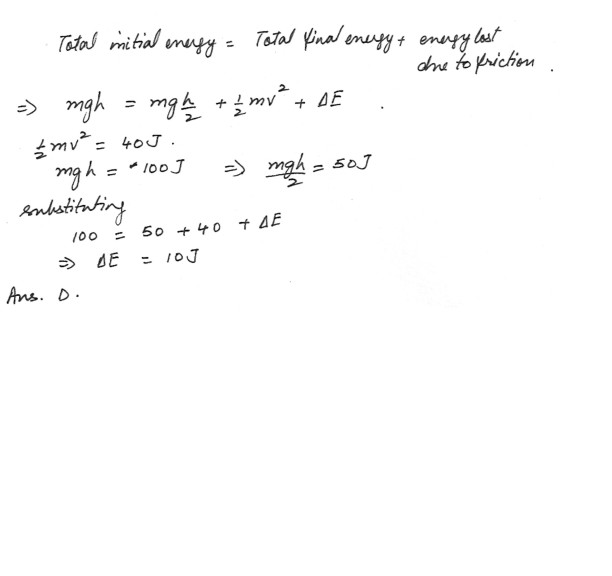 Total initial energy = Total final energy + energy lost
due to friction .
⇒ mgh = mg h/2 + 1/2 mv² + ΔE .
1/2 mv² = 40J .
mgh = 100J ⇒ mgh/2 = 50J
substituting
100 = 50 + 40 + ΔE
⇒ ΔE = 10J
Ans. D .